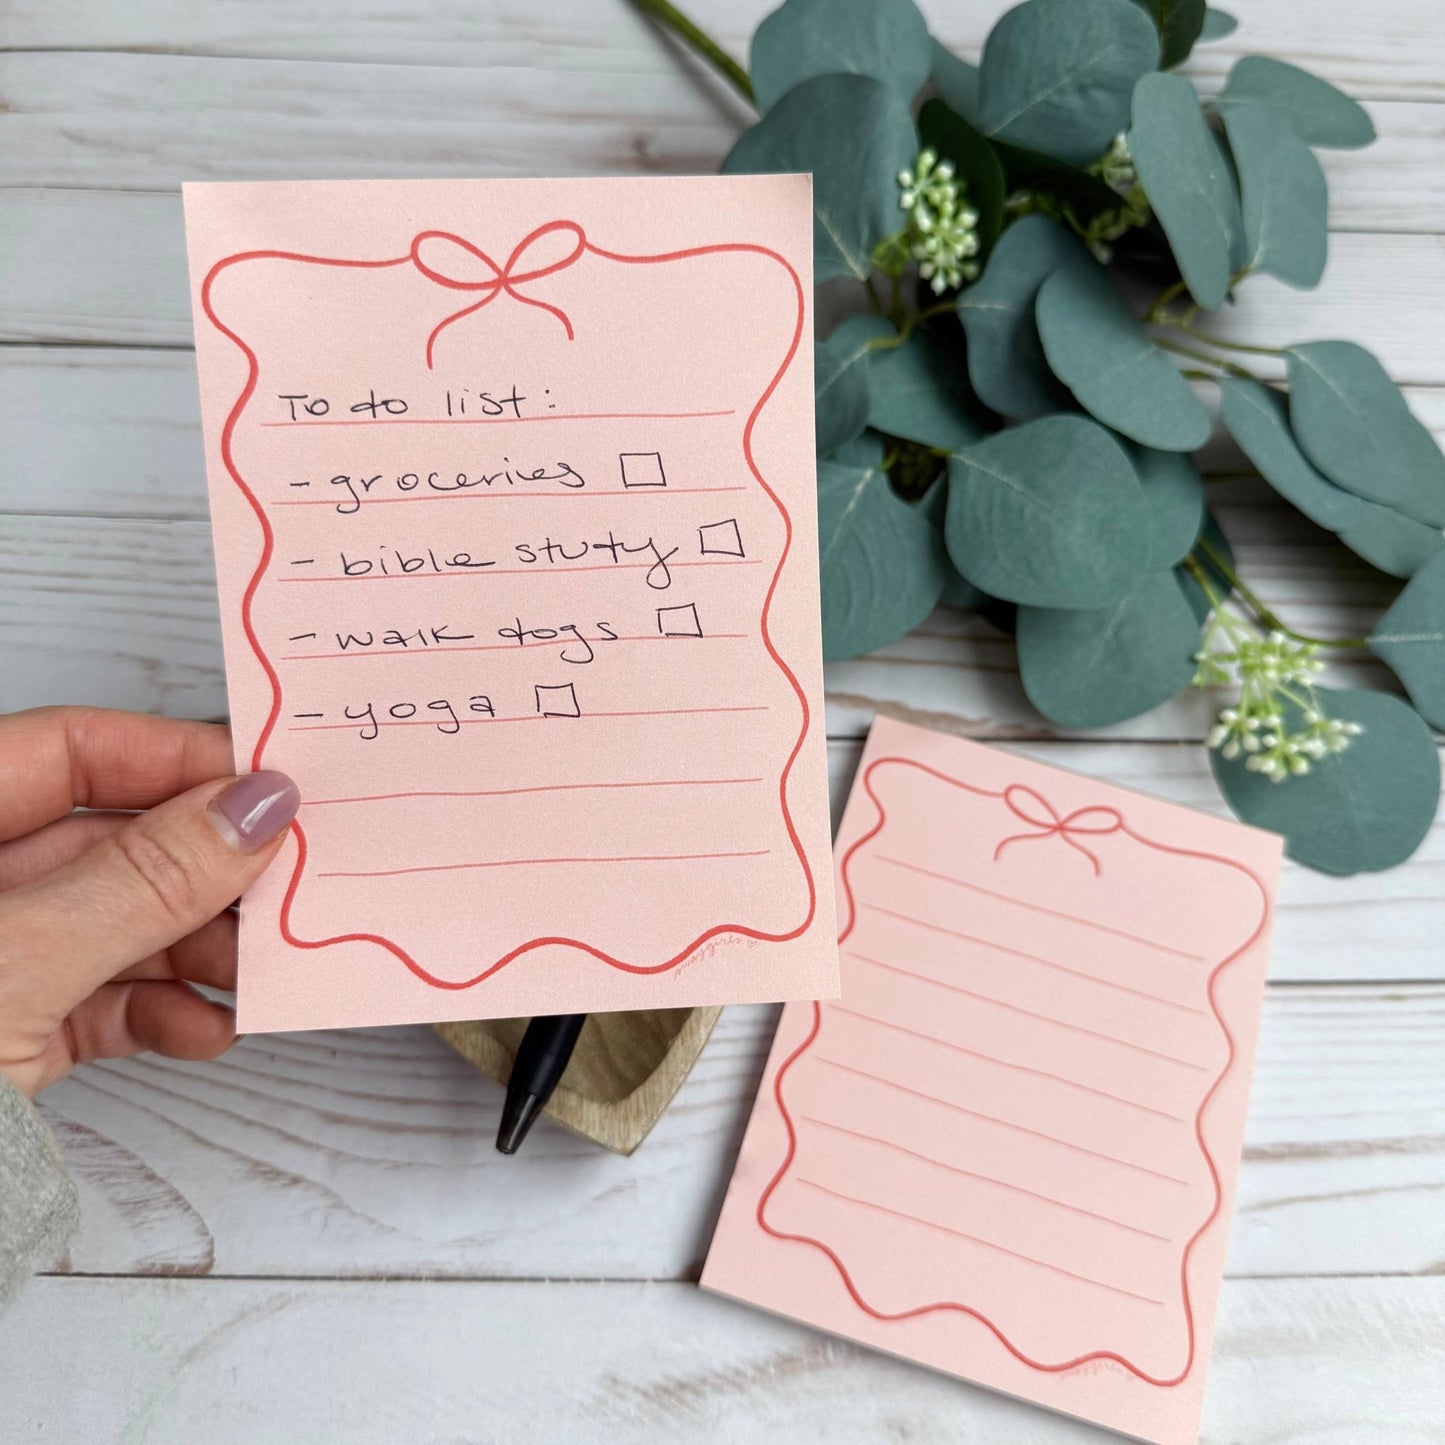 To do list:
- groceries ☐
- bible study ☐
- walk dogs ☐
- yoga ☐
swaygirls ♡